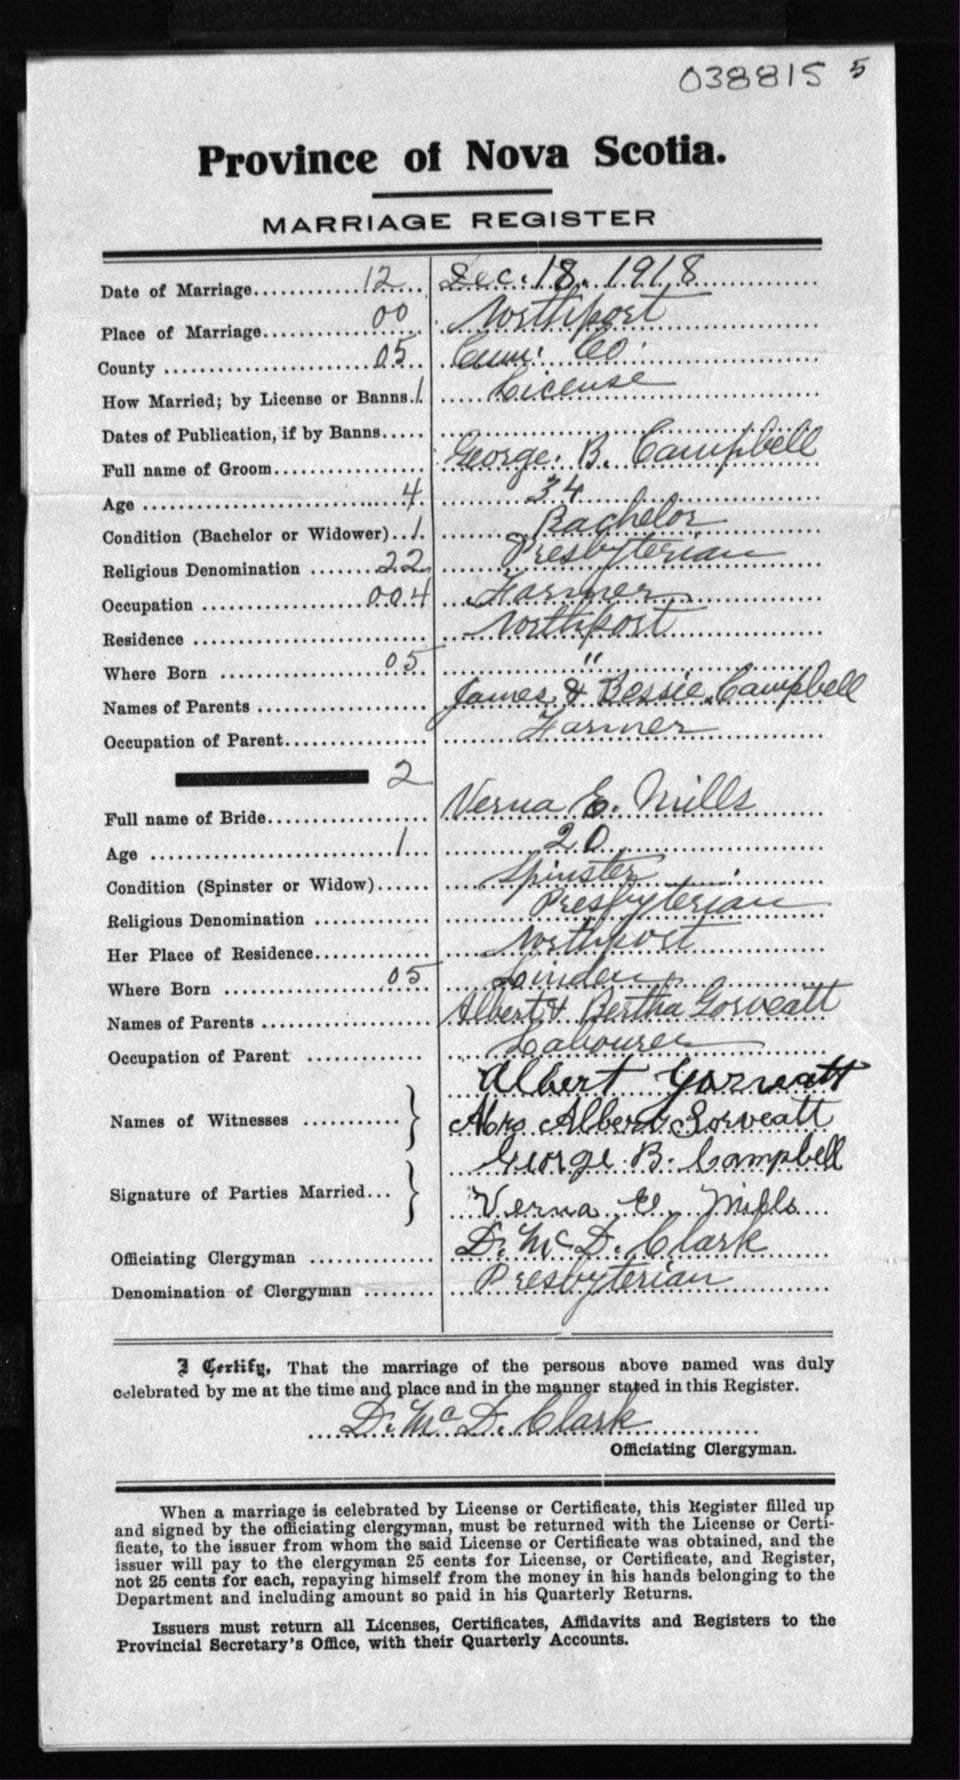 038815 5
Province of Nova Scotia.
MARRIAGE REGISTER
Date of Marriage 12 Dec. 18. 1918
Place of Marriage 00 Northport
County 05 Cum. Co.
How Married; by License or Banns. 1 License
Dates of Publication, if by Banns
Full name of Groom George. B. Campbell
Age 4 34
Condition (Bachelor or Widower) 1 Bachelor
Religious Denomination 22 Presbyterian
Occupation 004 Farmer
Residence Northport
Where Born 05 "
Names of Parents James & Bessie Campbell
Occupation of Parent Farmer
2
Full name of Bride Verna E. Mills
Age 1 20
Condition (Spinster or Widow) Spinster
Religious Denomination Presbyterian
Her Place of Residence Northport
Where Born 05 Linden
Names of Parents Albert & Bertha Gorveatt
Occupation of Parent Labourer
Albert Gorveatt
Names of Witnesses Mrs Albert Gorveatt
George B. Campbell
Signature of Parties Married
Verna E. Mills
Officiating Clergyman D. McD. Clark
Denomination of Clergyman Presbyterian
I Certify, That the marriage of the persons above named was duly
celebrated by me at the time and place and in the manner stated in this Register.
D. McD. Clark
Officiating Clergyman.
When a marriage is celebrated by License or Certificate, this Register filled up
and signed by the officiating clergyman, must be returned with the License or Certi-
ficate, to the issuer from whom the said License or Certificate was obtained, and the
issuer will pay to the clergyman 25 cents for License, or Certificate, and Register,
not 25 cents for each, repaying himself from the money in his hands belonging to the
Department and including amount so paid in his Quarterly Returns.
Issuers must return all Licenses, Certificates, Affidavits and Registers to the
Provincial Secretary's Office, with their Quarterly Accounts.